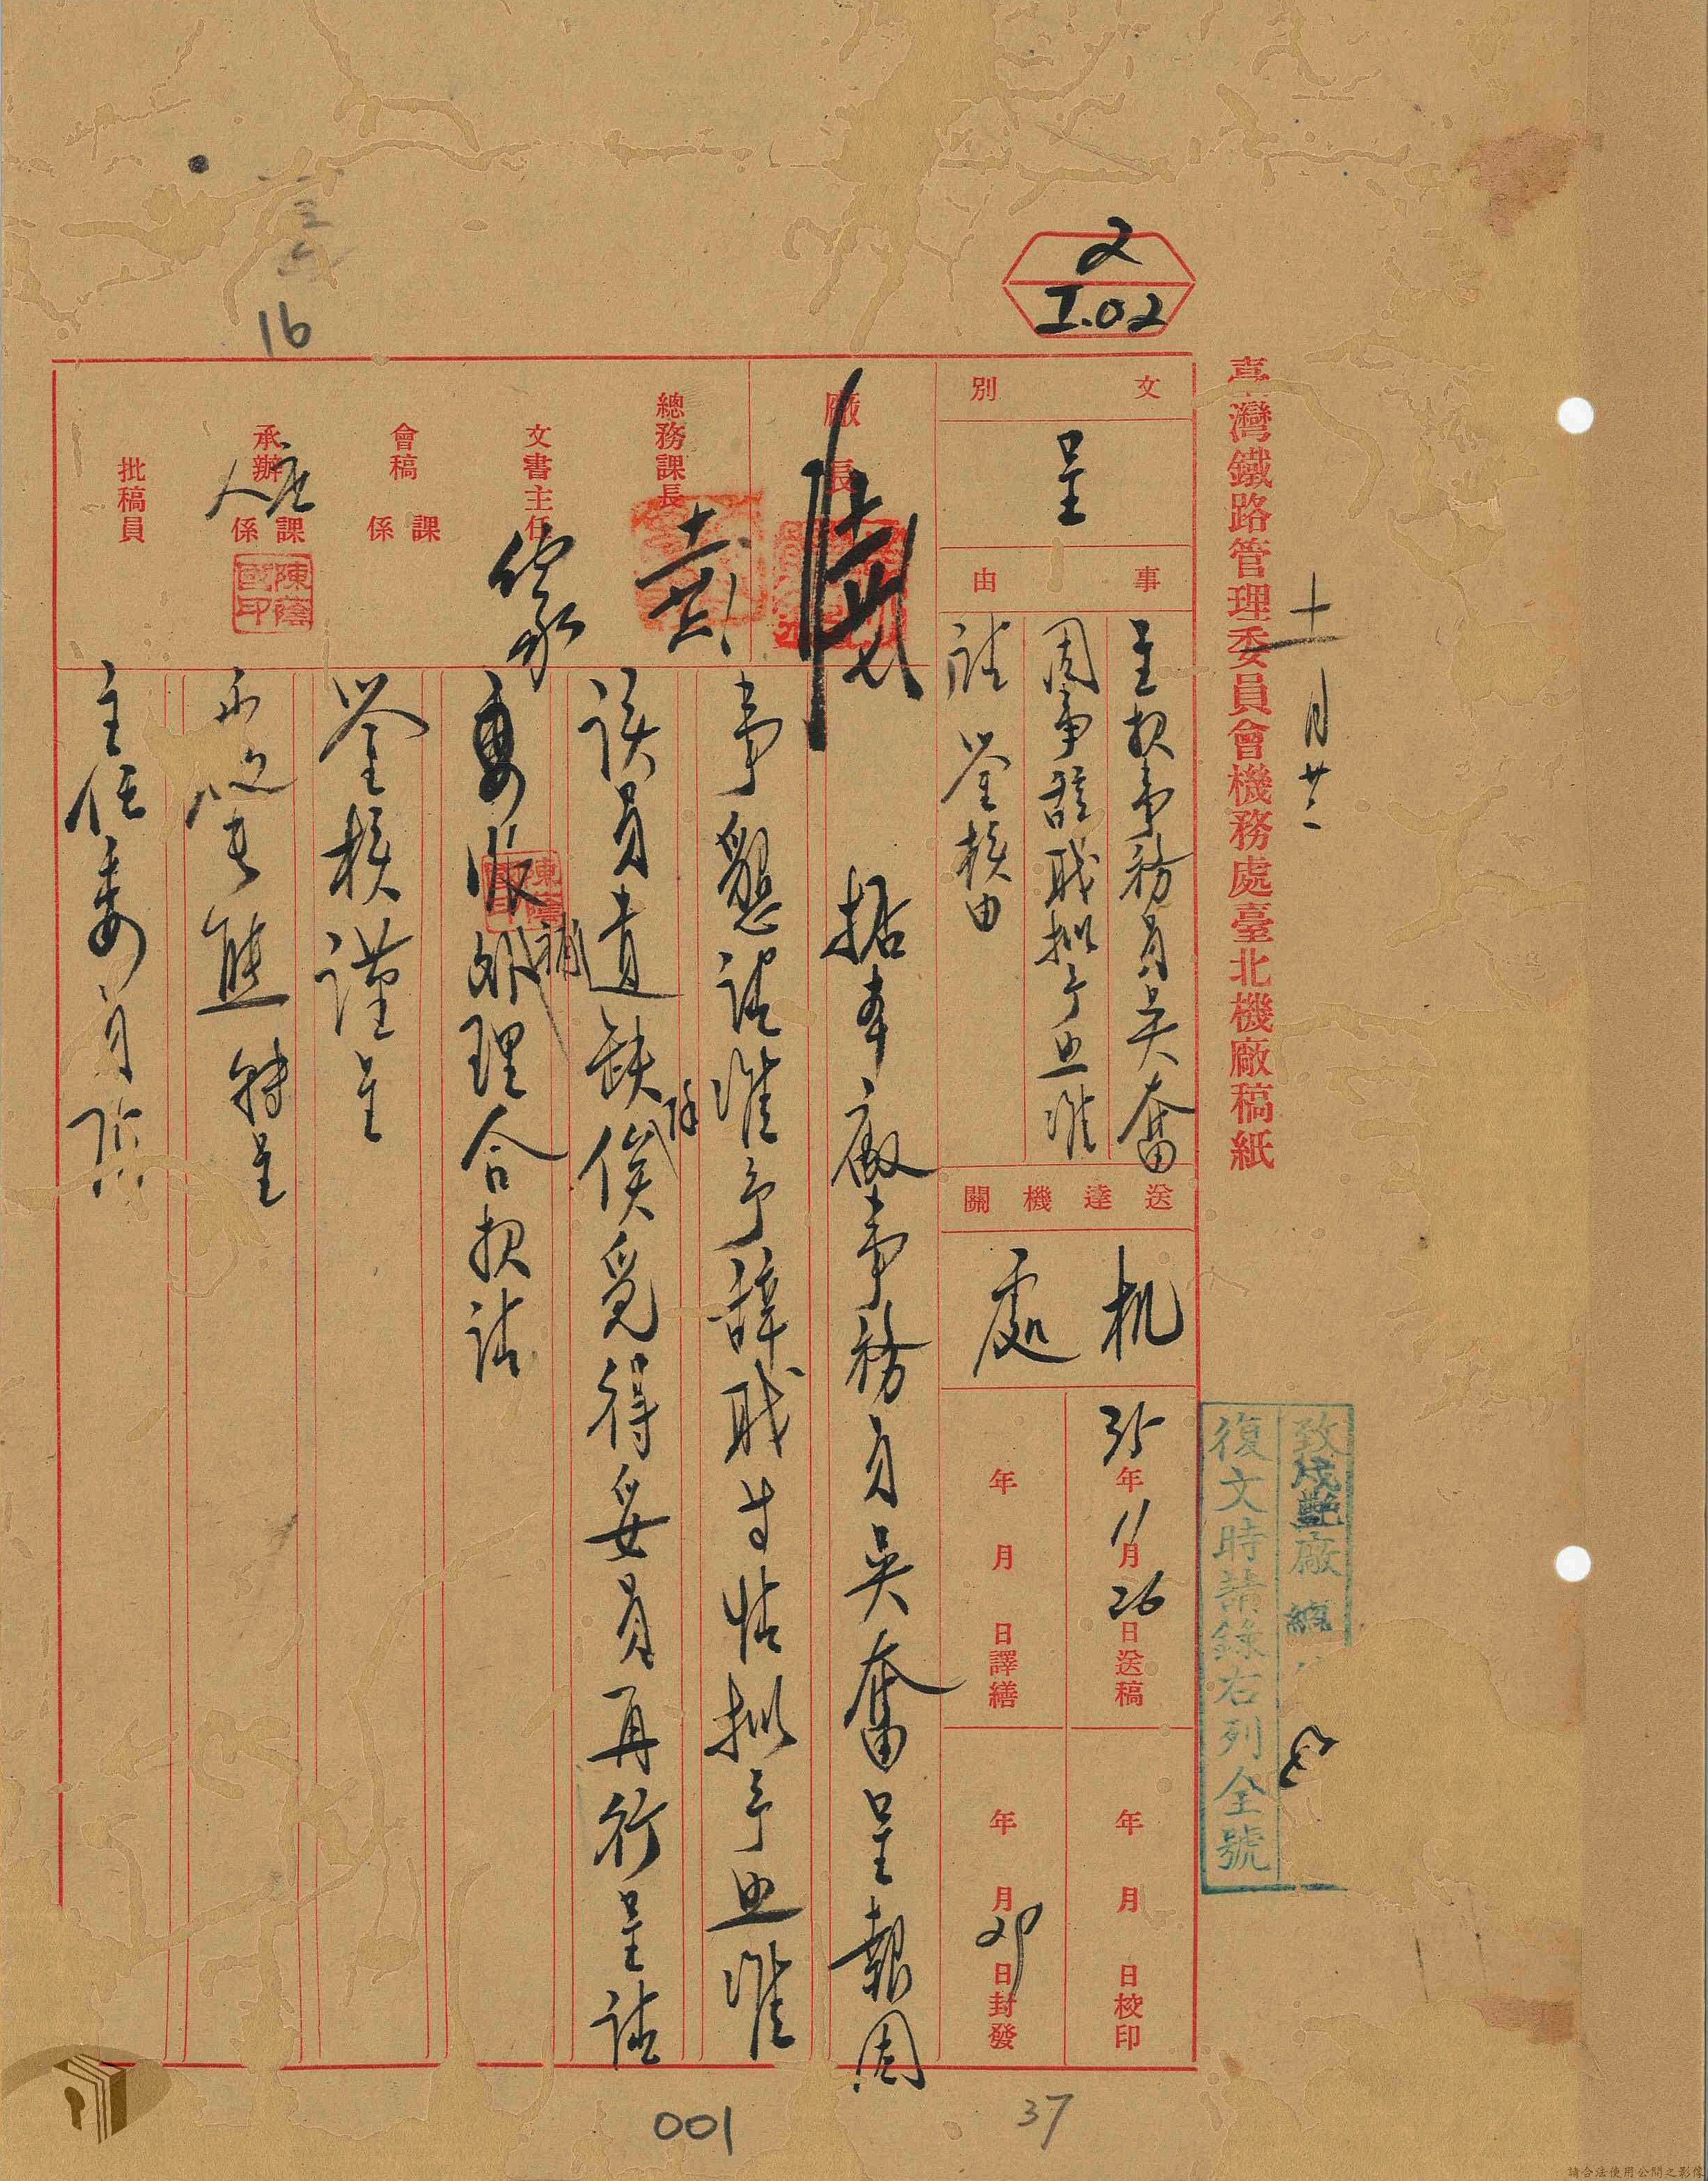 臺灣鐵路管理委員會機務處臺北機廠稿紙
十一月廿二
2
I.02
文別
呈
事由
呈報事務員吳奮
因事辭職擬予照准
請 鑒核由
送達機關
机處
35年11月26日送稿
年月日譯繕
年月日校印
年月 日封發
致戌艷廠總
復文時請錄右列全號
廠長
總務課長
文書主任
會稿 課係
承辦 課係
批稿員
陳蔭國印
據本廠事務員吳奮呈報因
事懇請准予辭職等情擬予照准
該員遺缺除俟覓得妥員再行呈請
委派補外理合報請
鑒核謹呈
處長熊 轉呈
主任委員陳
陳蔭國印
16
001
37
請合法使用公開之影像